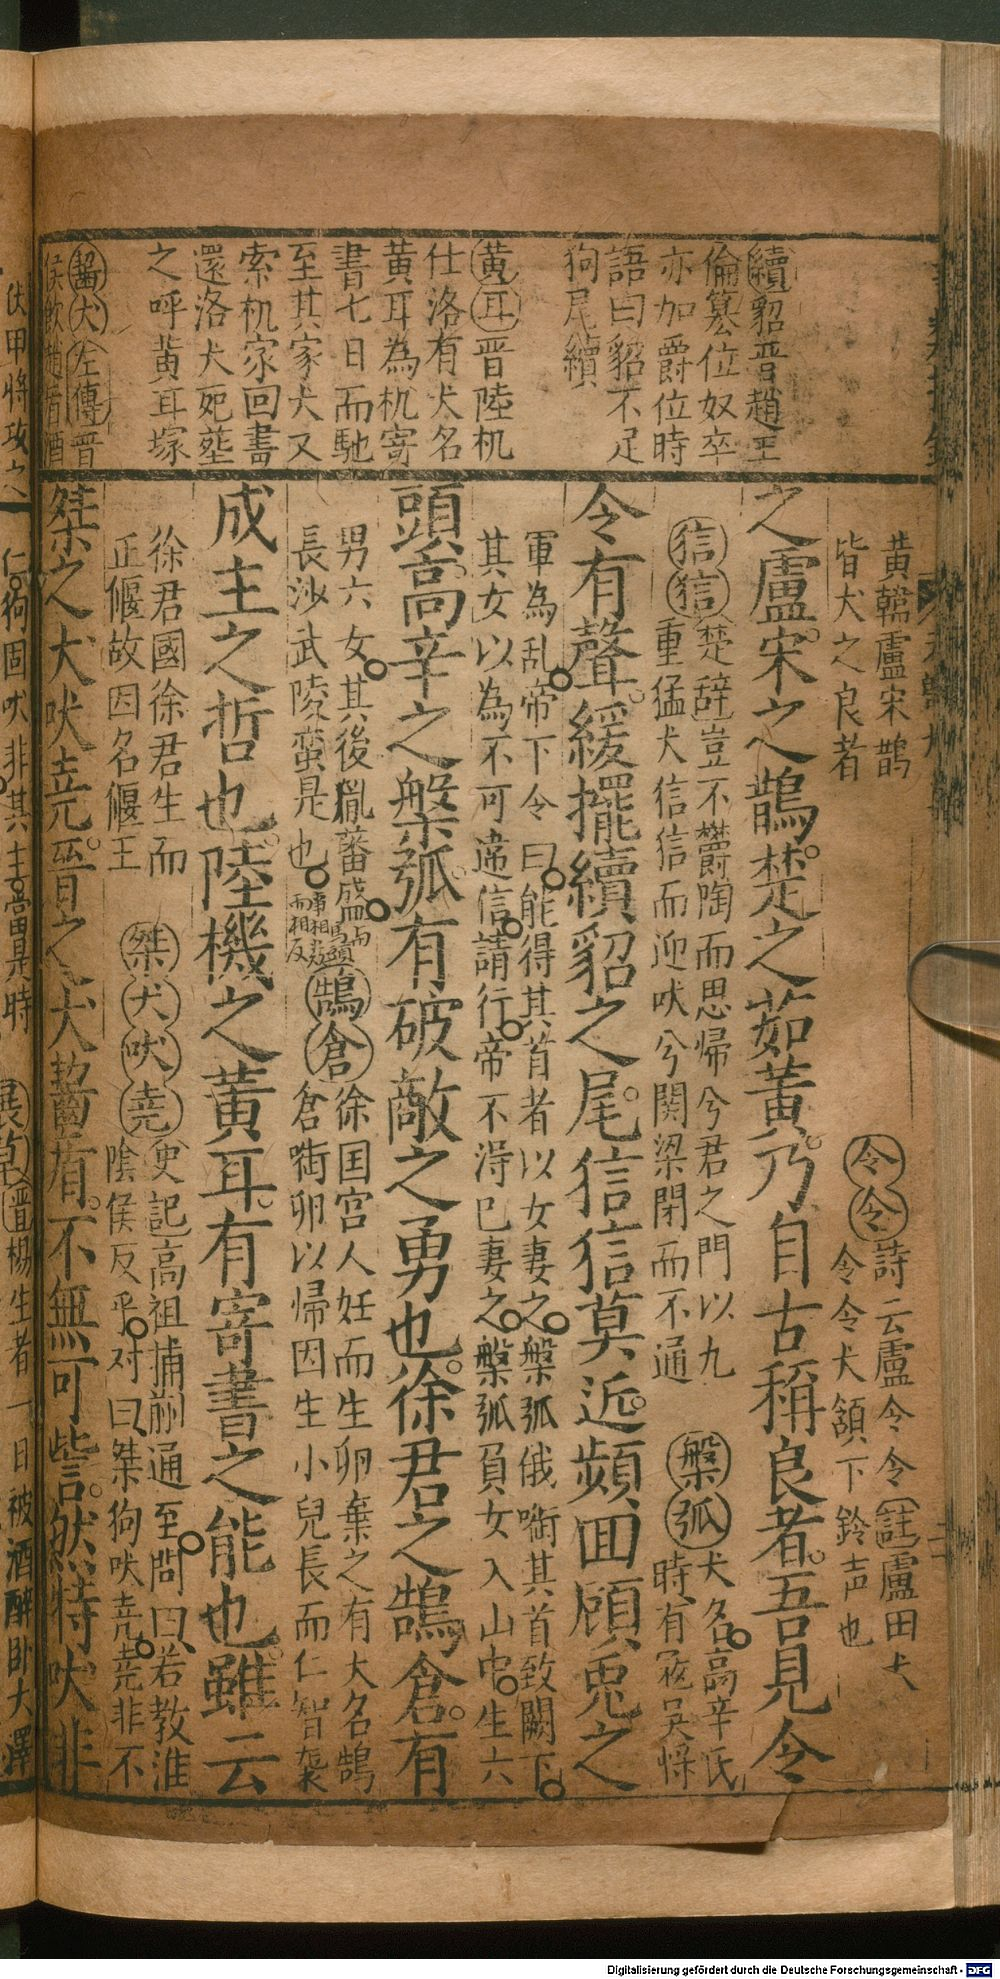 續貂晋趙王
倫篡位奴卒
亦加爵位時
語曰貂不足
狗尾續
黄耳晋陸机
仕洛有犬名
黄耳為机寄
書七日而馳
至其家犬又
索机家回書
還洛犬死塟
之呼黄耳塚
齧犬左傳晋
侯飲趙盾酒
黄韓盧宋鹊
皆犬之良者
令令詩云盧令令註盧田犬
令令犬頷下鈴声也
之盧宋之鵲楚之茹黄乃自古稱良者吾見令
信信楚辞豈不欝陶而思帰兮君之門以九
重猛犬信信而迎吠兮関梁閉而不通
槃弧犬名高辛氏
時有寇吴将
令有聲緩擺續貂之尾信信莫近頻囬頋兎之
軍為乱帝下令曰能得其首者以女妻之槃弧俄啣其首致闕下
其女以為不可違信請行帝不得已妻之槃弧負女入山中生六
頭高辛之槃弧有破敵之勇也徐君之鵠倉有
男六女其後胤蕃成
長沙武陵蛮是也
鵠倉徐国宫人妊而生卵棄之有犬名鵠
倉啣卵以帰因生小兒長而仁智襲
成主之哲也陸機之黄耳有寄書之能也雖云
徐君國徐君生而
正偃故因名偃王
桀犬吠尭史記高祖捕蒯通至問曰若教淮
隂侯反乎对曰桀狗吠尭尭非不
桀之犬吠尭晋之犬齧盾不無可訾然特吠非
伏甲將攻之
仁狗固吠非其主
展草晋楊生者一日被酒醉卧大澤
Digitalisierung gefördert durch die Deutsche Forschungsgemeinschaft - DFG